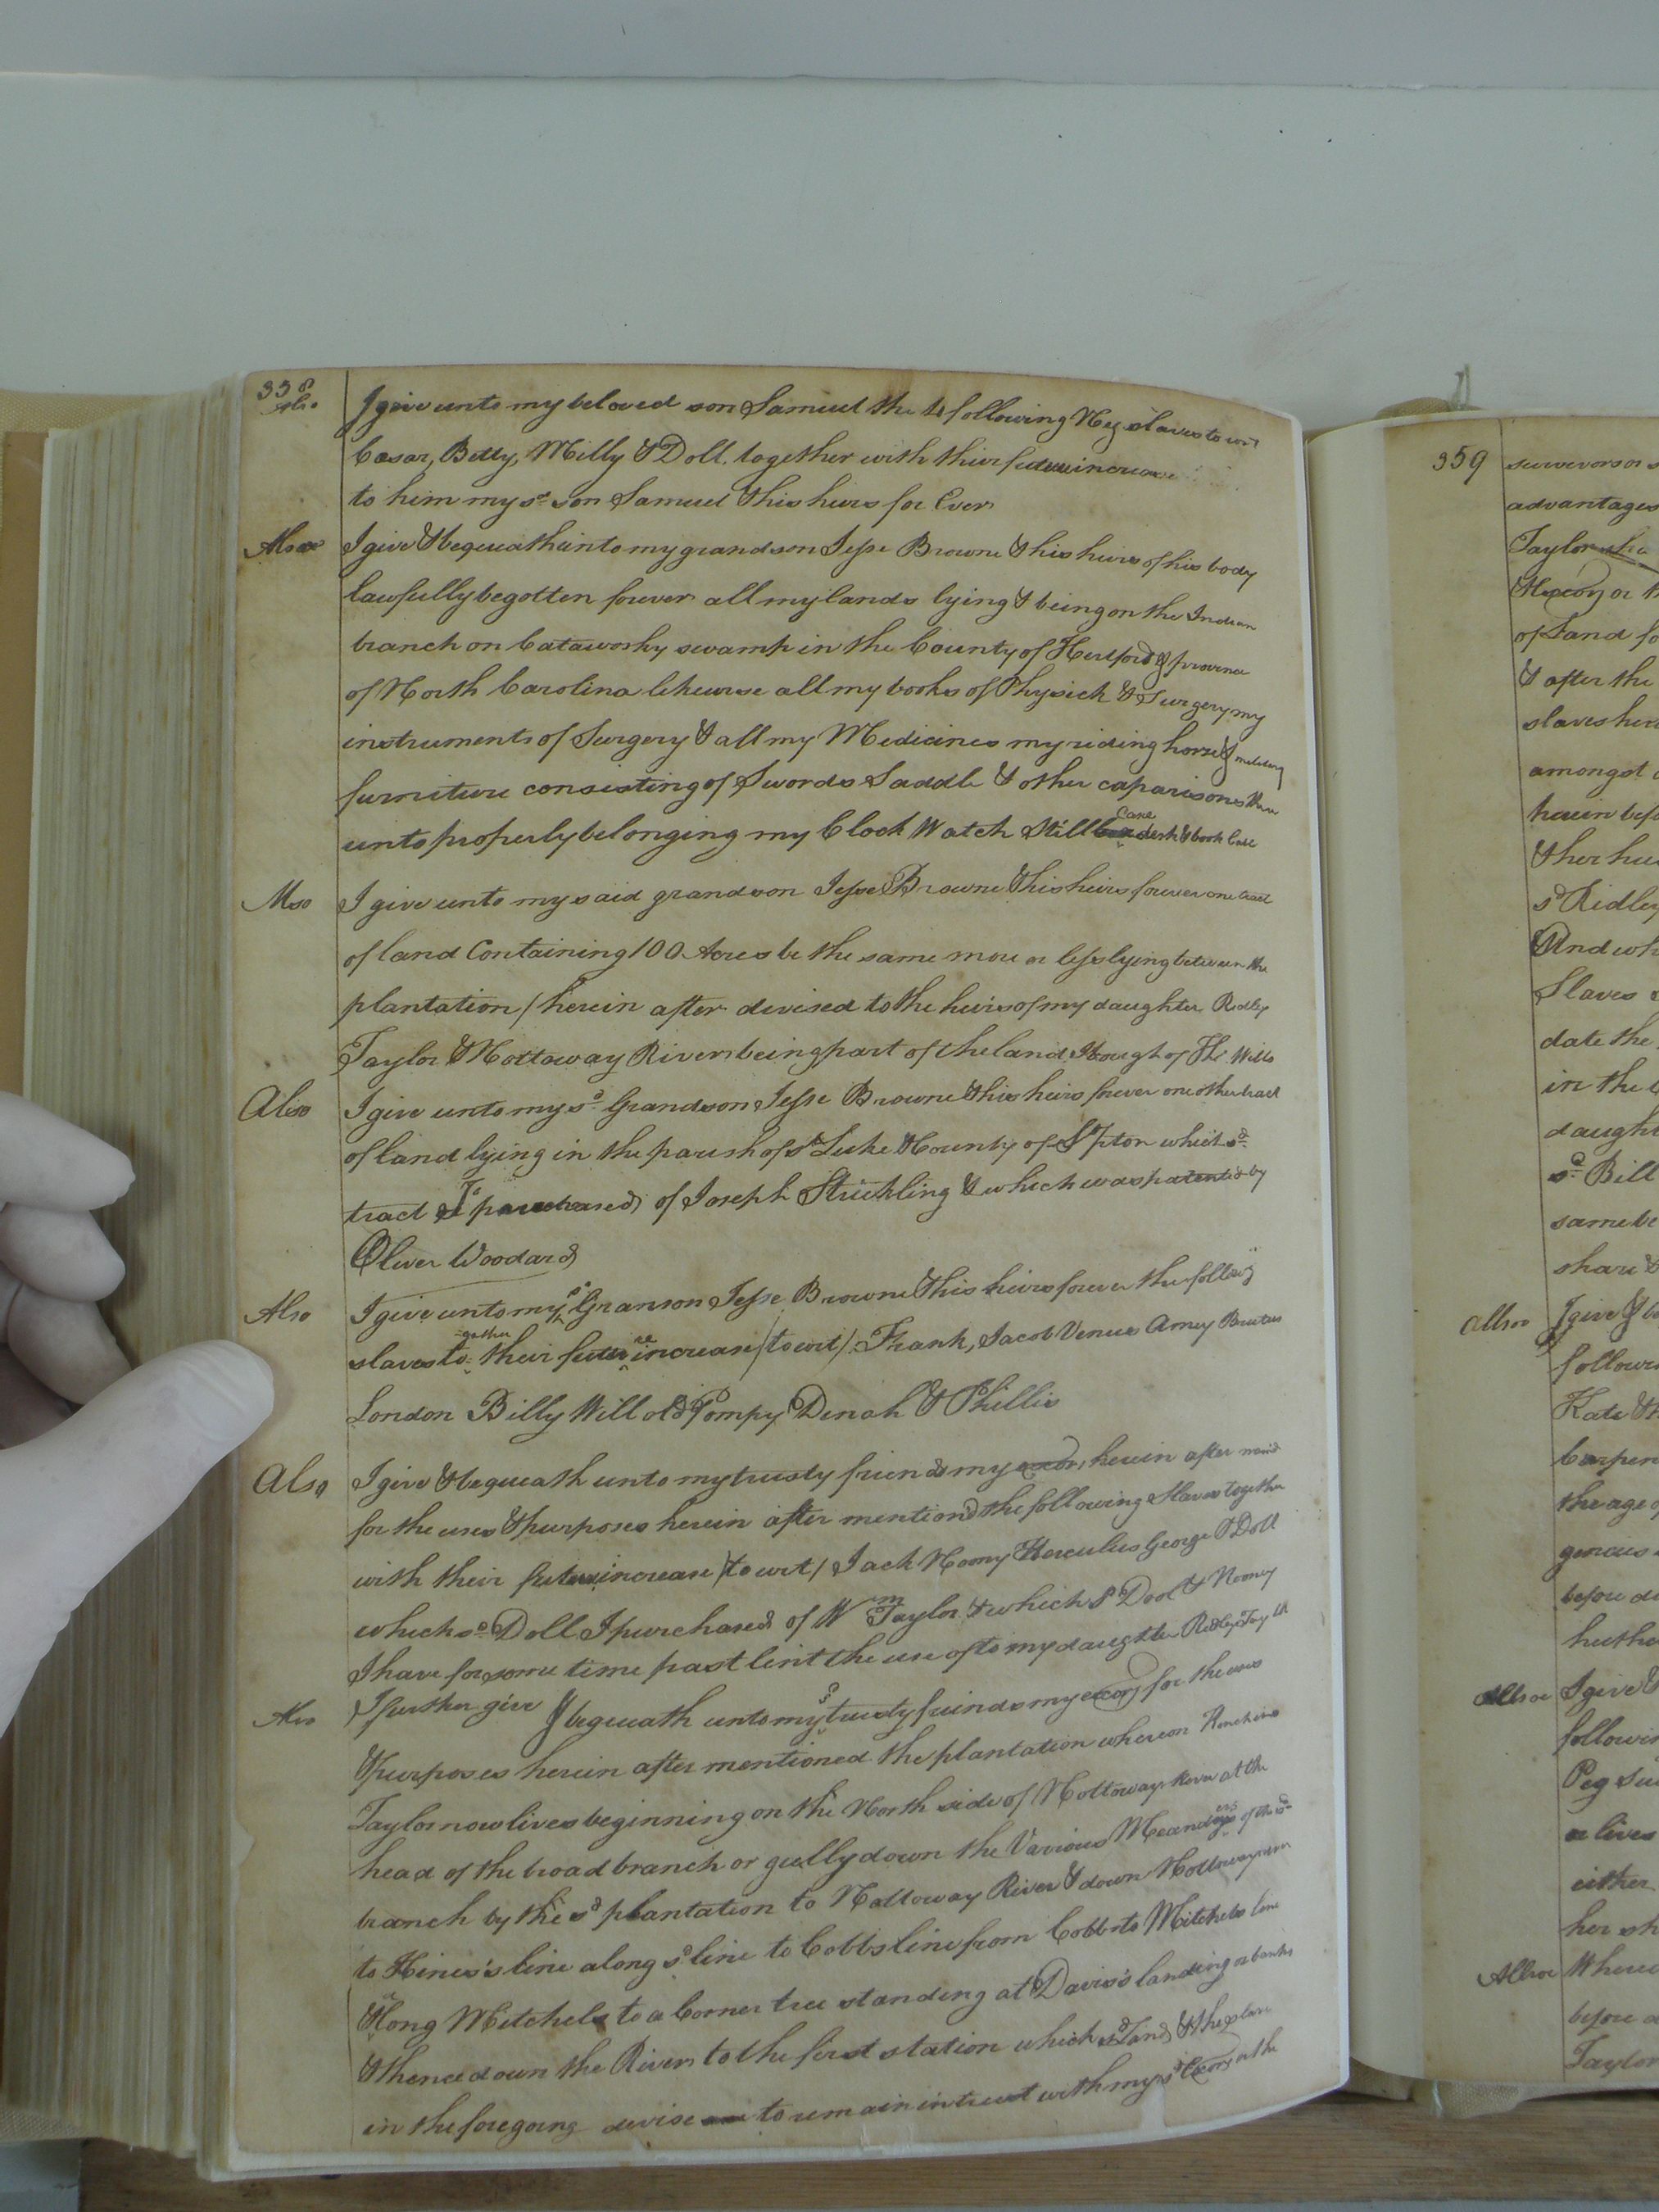 338
Also I give unto my beloved son Samuel the 4 following Neg slaves to wit
Cæsar, Betty, Milly & Doll, together with their future increase
to him my sd son Samuel & his heirs for Ever
Also I give & bequeath unto my grandson Jesse Browne & his heirs of his body
lawfully begotten forever all my lands lying & being on the Indian
branch on Catawosky swamp in the County of Hertford & province
of North Carolina likewise all my books of Physick & Surgery my
instruments of Surgery & all my Medicines my riding horse & military
furniture consisting of Swords Saddle & other caparisons there
unto properly belonging my Clock Watch Still Cane desk & book Case
Also I give unto my said grandson Jesse Browne & his heirs forever one tract
of land Containing 100 Acres be the same more or less lying between the
plantation / herein after devised to the heirs of my daughter Ridley
Taylor & Nottoway River being part of the land I bought of Wills
Also I give unto my sd Grandson Jesse Browne & his heirs forever one other tract
of land lying in the parish of St Luke & County of S'pton which sd
tract I purchased of Joseph Strickling & which was patented by
Oliver Woodard
Also I give unto my sd Granson Jesse Browne & his heirs forever the follow'g
slaves together their future increase / to wit / Frank, Jacob Venus Amey Brutus
London Billy Will old Pompy Dinah & Phillis
Also I give & bequeath unto my trusty friends my excors, herein after
for the uses & purposes herein after mentiond the following Slaves together
with their future increase / to wit / Jack Noony Herculus George & Doll
which sd Doll I purchased of Wm Taylor & which sd Dool & Nooney
I have for some time past lent the use of to my daughter Ridley Taylor
Also I further give & bequeath unto my sd trusty friends my excors for the uses
& purposes herein after mentioned the plantation whereon
Taylor now lives beginning on the North side of Nottoway River at the
head of the broad branch or gully down the Various Meanders of the sd
branch by the sd plantation to Nottoway River & down Nottoway river
to Hines's line along sd line to Cobbs line from Cobb to Mitchels line
& along Mitchels to a Corner tree standing at Davis's landing or banks
& thence down the River to the first station which sd Land & the slaves
in the foregoing devise to remain in trust with my sd Excors or the
359
advantages
Taylor
& Excors or
of Land
& after the
slaves
amongst
herein
& her
sd Ridley
And
Slaves
date the
in the
sd Bill
same be
share &
Allso I give &
Kate &
the age
before
Allso I give &
Peg
or lives
either
her
Allso
before
Taylor